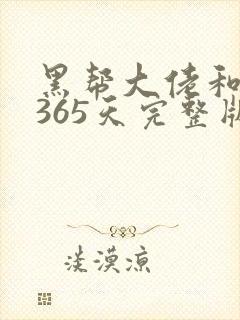 黑帮大佬和
365天完整版
淡漠凉